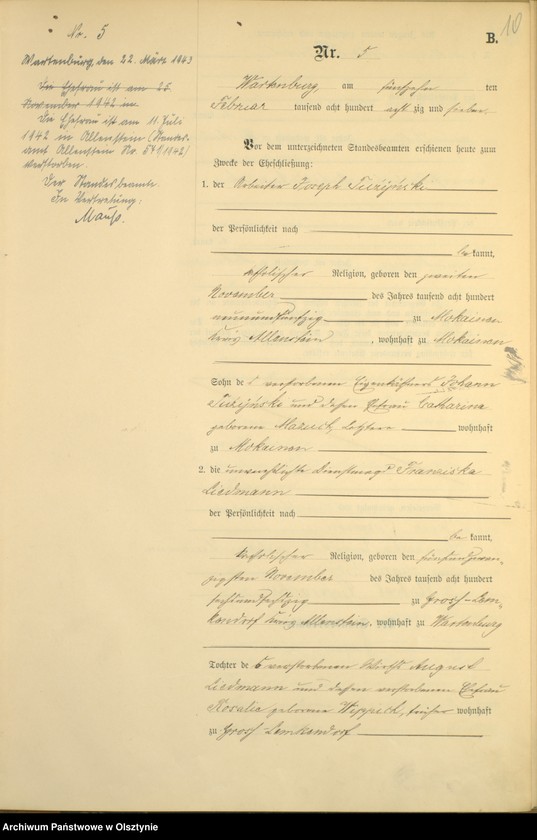 10
B.
No. 5
Nr. 5
Wartenburg, den 22. März 1943
Die Ehefrau ist am 25.
November 1942 in
Die Ehefrau ist am 11. Juli
1942 in Allenstein (Standes-
amt Allenstein Nr. 571/1942)
verstorben.
Der Standesbeamte
In Vertretung:
Wartenburg, am fünfzehn ten
Februar tausend acht hundert acht zig und sieben
Vor dem unterzeichneten Standesbeamten erschienen heute zum
Zwecke der Eheschließung:
1. der Arbeiter Joseph
der Persönlichkeit nach
be kannt,
katholischer Religion, geboren den zweiten
November des Jahres tausend acht hundert
neunundfünfzig zu Mokainen
Kreis Allenstein, wohnhaft zu Mokainen
Sohn des verstorbenen Eigenkäthners Johann
und dessen Ehefrau Catharina
geborene letztere wohnhaft
zu Mokainen
2. die unverehelichte Dienstmagd Franziska
Liedmann
der Persönlichkeit nach
be kannt,
katholischer Religion, geboren den fünfundzwan-
zigsten November des Jahres tausend acht hundert
sechsundsechszig zu Gross-Lem-
kendorf Kreis Allenstein, wohnhaft zu Wartenburg
Tochter des verstorbenen Wirths August
Liedmann und dessen verstorbenen Ehefrau
Rosalie geborene früher wohnhaft
zu Gross Lemkendorf
Archiwum Państwowe w Olsztynie